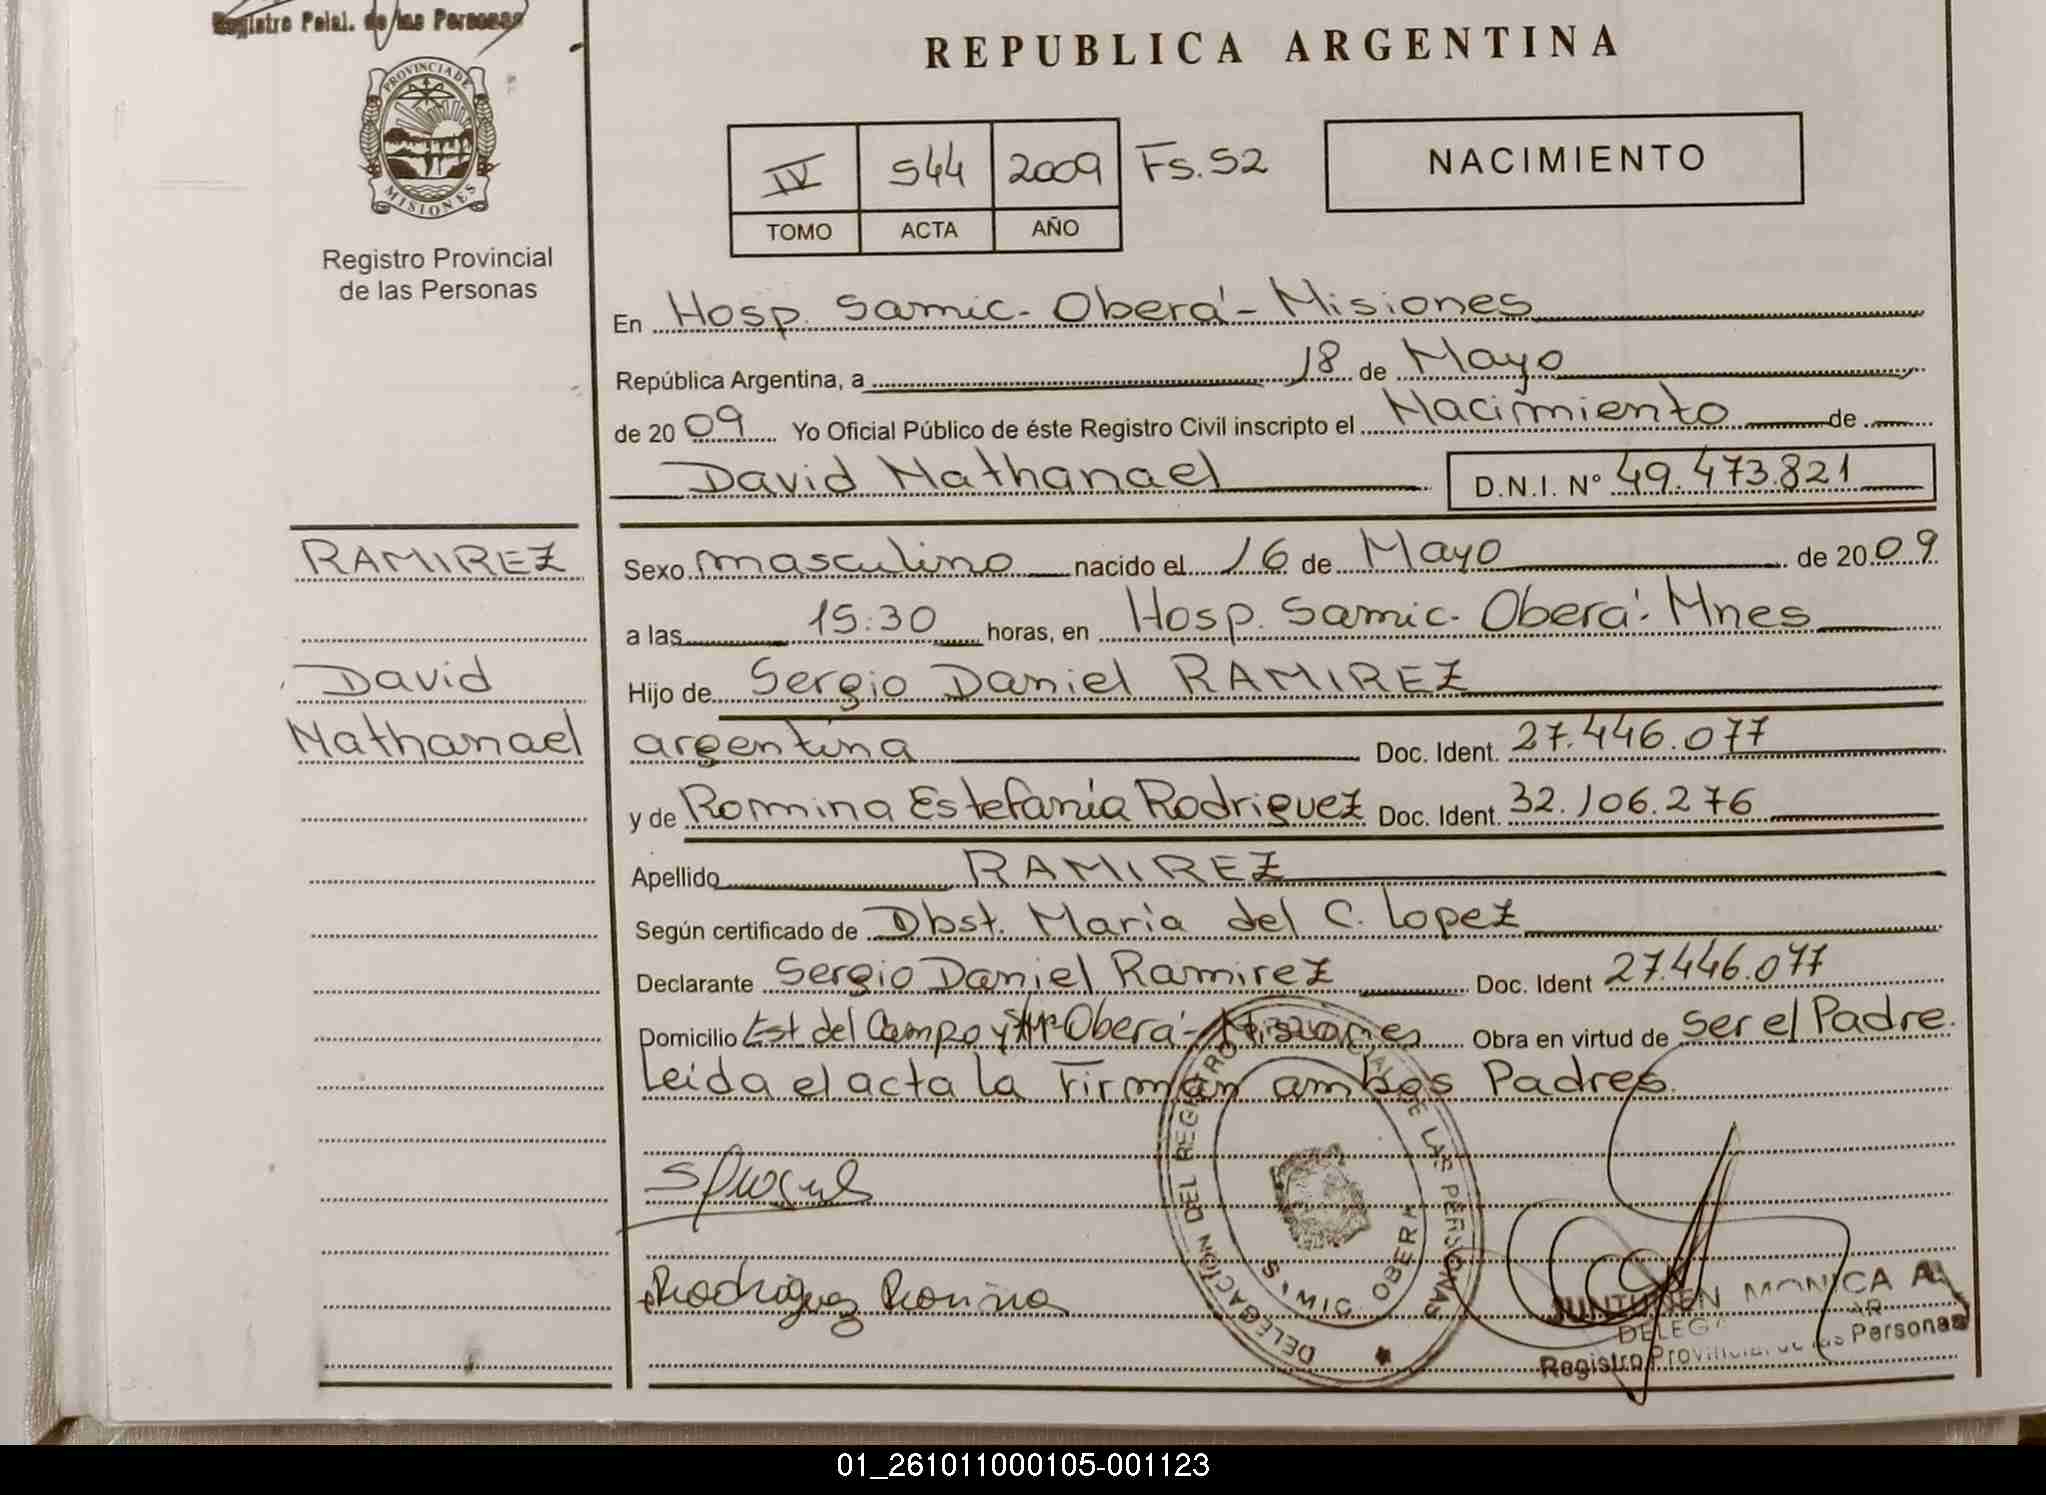 Registro Pcial. de las Personas
PROVINCIA DE
MISIONES
Registro Provincial
de las Personas
REPUBLICA ARGENTINA
IV 544 2009 Fs. 52
TOMO ACTA AÑO
NACIMIENTO
En Hosp. Samic - Oberá - Misiones
República Argentina, a 18 de Mayo
de 2009 Yo Oficial Público de éste Registro Civil inscripto el Nacimiento de
David Nathanael D.N.I. N° 49.473.821
RAMIREZ
David
Nathanael
Sexo masculino nacido el 16 de Mayo de 2009
a las 15:30 horas, en Hosp. Samic - Oberá - Mnes
Hijo de Sergio Daniel RAMIREZ
argentina Doc. Ident. 27.446.077
y de Romina Estefanía Rodriguez Doc. Ident. 32.106.276
Apellido RAMIREZ
Según certificado de Obst. María del C. Lopez
Declarante Sergio Daniel Ramirez Doc. Ident 27.446.077
Domicilio Est del Campo y Oberá - Misiones Obra en virtud de Ser el Padre.
Leida el acta la Firman ambos Padres.
Rodriguez Romina
DELEGACION DEL REGISTRO DE LAS PERSONAS
OBERA
JUNTUNEN MONICA A.
Registro Provincial de las Personas
01_261011000105-001123